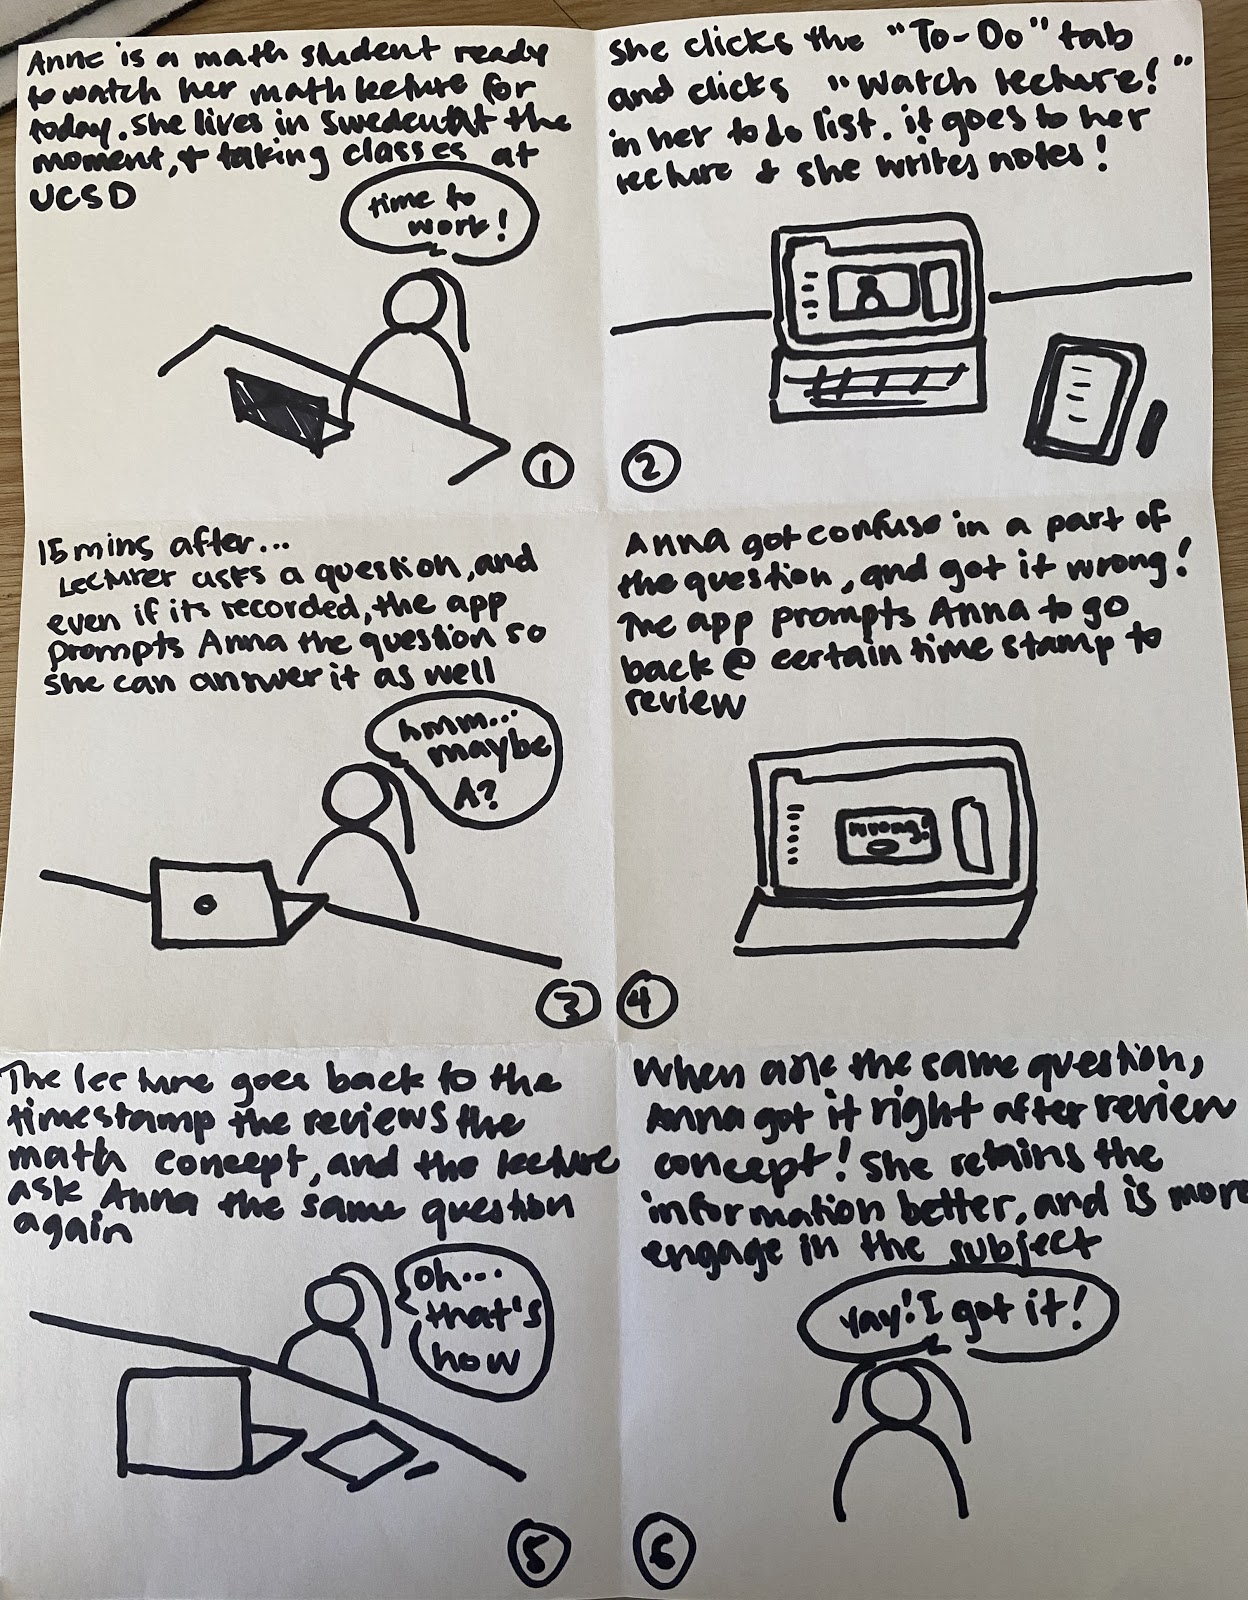 Anne is a math student ready
to watch her math lecture for
today. She lives in Sweden at the
moment, & taking classes at
UCSD
time to
work!
1
She clicks the "To-Do" tab
and clicks "Watch lecture!"
in her to do list. it goes to her
lecture & she writes notes!
2
15 mins after...
Lecturer asks a question, and
even if its recorded, the app
prompts Anna the question so
she can answer it as well
hmm...
maybe
A?
3
Anna got confuse in a part of
the question, and got it wrong!
The app prompts Anna to go
back @ certain time stamp to
review
wrong!
4
The lecture goes back to the
timestamp the reviews the
math concept, and the lecture
ask Anna the same question
again
oh...
that's
how
5
When ask the same question,
Anna got it right after review
concept! She retains the
information better, and is more
engage in the subject
Yay! I got it!
6